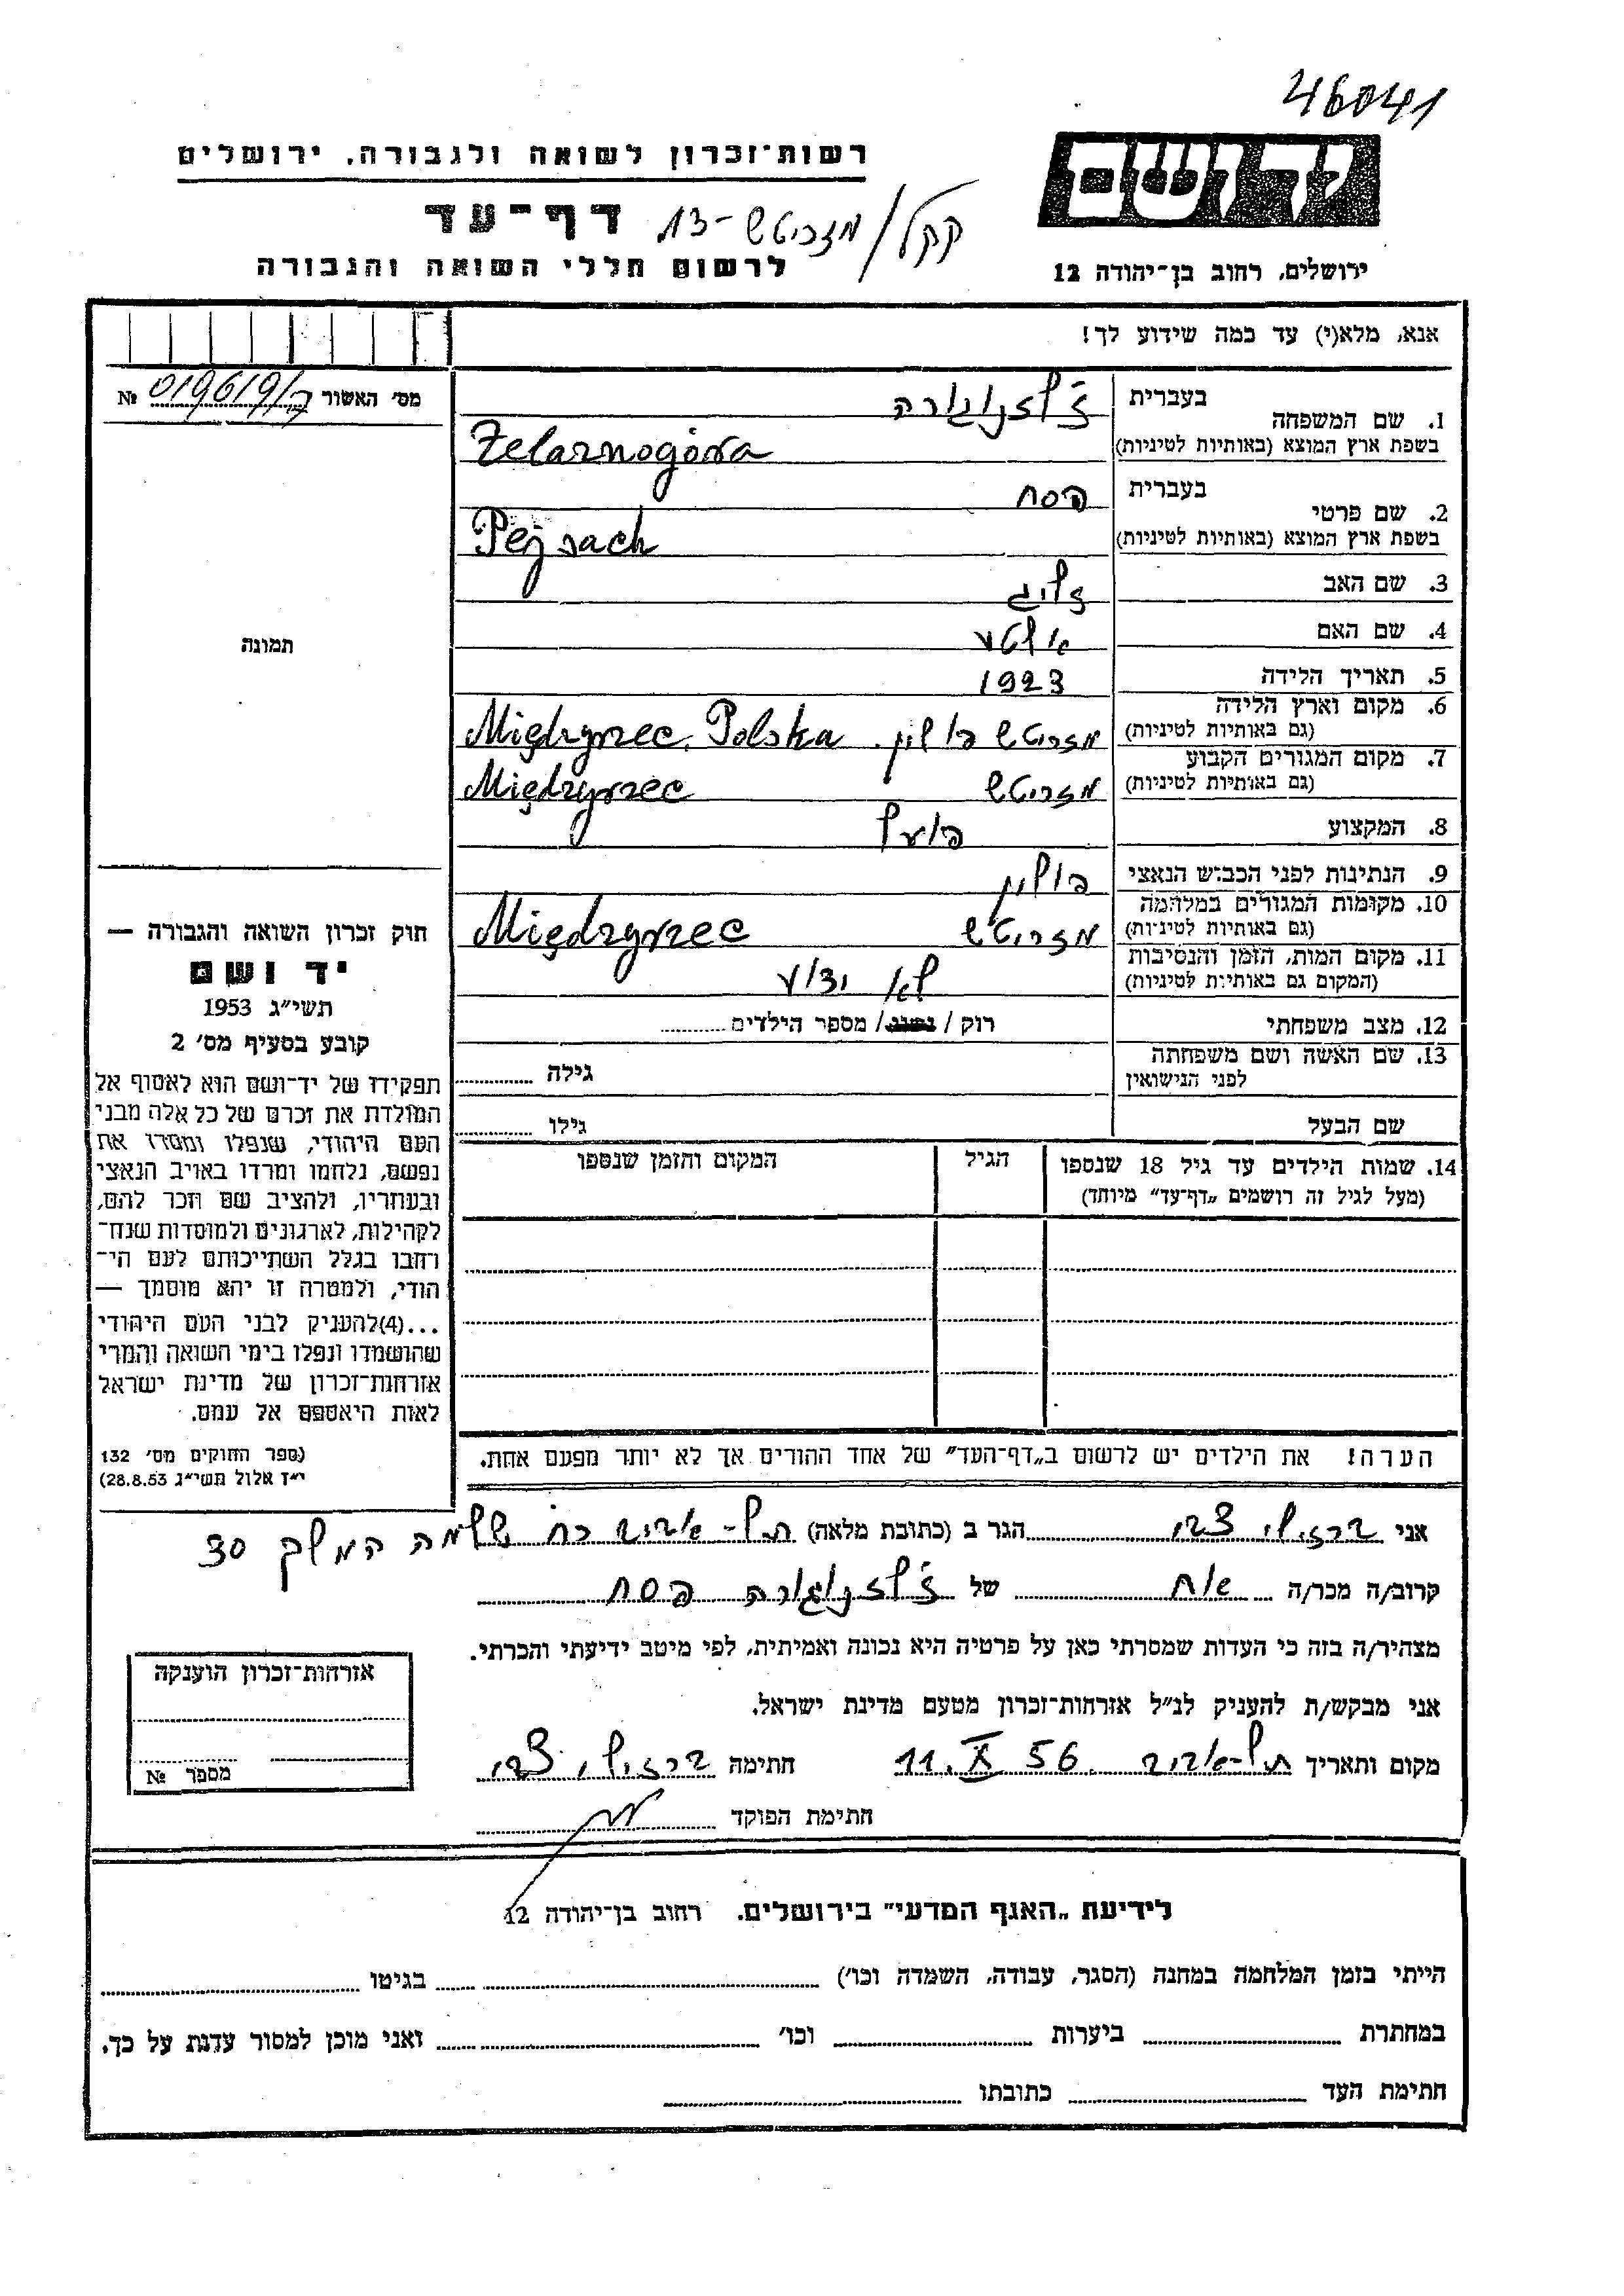 46041
רשות־זכרון לשואה ולגבורה, ירושלים
יד ושם
דף־עד
קקל/מזריטש-13
לרשום חללי השואה והגבורה
ירושלים, רחוב בן־יהודה 12
אנא, מלא(י) עד כמה שידוע לך!
מס׳ האשור № 019619/ק
1. שם המשפחה
בעברית ז'לזנוגורה
בשפת ארץ המוצא (באותיות לטיניות) Żelaznogóra
2. שם פרטי
בעברית פסח
בשפת ארץ המוצא (באותיות לטיניות) Pejsach
3. שם האב זליג
4. שם האם
5. תאריך הלידה 1923
6. מקום וארץ הלידה
(גם באותיות לטיניות) מזריטש פולין. Międzyrzec, Polska
7. מקום המגורים הקבוע
(גם באותיות לטיניות) מזריטש Międzyrzec
8. המקצוע פועל
9. הנתינות לפני הכבוש הנאצי פולין
10. מקומות המגורים במלחמה
(גם באותיות לטיניות) מזריטש Międzyrzec
11. מקום המות, הזמן והנסיבות
(המקום גם באותיות לטיניות) לא ידוע
12. מצב משפחתי רוק / נשוי / מספר הילדים
13. שם האשה ושם משפחתה
לפני הנישואין גילה
שם הבעל גילו
14. שמות הילדים עד גיל 18 שנספו הגיל המקום והזמן שנספו
(מעל לגיל זה רושמים „דף־עד״ מיוחד)
הערה! את הילדים יש לרשום ב„דף־העד״ של אחד ההורים אך לא יותר מפעם אחת.
תמונה
חוק זכרון השואה והגבורה —
יד ושם
תשי״ג 1953
קובע בסעיף מס׳ 2
תפקידו של יד־ושם הוא לאסוף אל
המולדת את זכרם של כל אלה מבני
העם היהודי, שנפלו ומסרו את
נפשם, נלחמו ומרדו באויב הנאצי
ובעוזריו, ולהציב שם וזכר להם,
לקהילות, לארגונים ולמוסדות שנח־
רחבו בגלל השתייכותם לעם הי־
הודי, ולמטרה זו יהא מוסמך —
...(4)להעניק לבני העם היהודי
שהושמדו ונפלו בימי השואה והמרי
אזרחות־זכרון של מדינת ישראל
לאות היאספם אל עמם.
(ספר החוקים מס׳ 132
י״ז אלול תשי״ג 28.8.53)
אני ברזילי צבי הגר ב (כתובת מלאה) תל-אביב רח שלמה המלך 30
קרוב/ה מכר/ה אח של ז'לזנוגורה פסח
מצהיר/ה בזה כי העדות שמסרתי כאן על פרטיה היא נכונה ואמיתית, לפי מיטב ידיעתי והכרתי.
אני מבקש/ת להעניק לנ״ל אזרחות־זכרון מטעם מדינת ישראל.
מקום ותאריך תל-אביב. 11.X 56 חתימה ברזילי צבי
חתימת הפוקד
אזרחות־זכרון הוענקה
מספר №
לידיעת „האגף המדעי״ בירושלים. רחוב בן־יהודה 12
הייתי בזמן המלחמה במחנה (הסגר, עבודה, השמדה וכו׳) בגיטו
במחתרת ביערות וכו׳ ואני מוכן למסור עדות על כך.
חתימת העד כתובתו